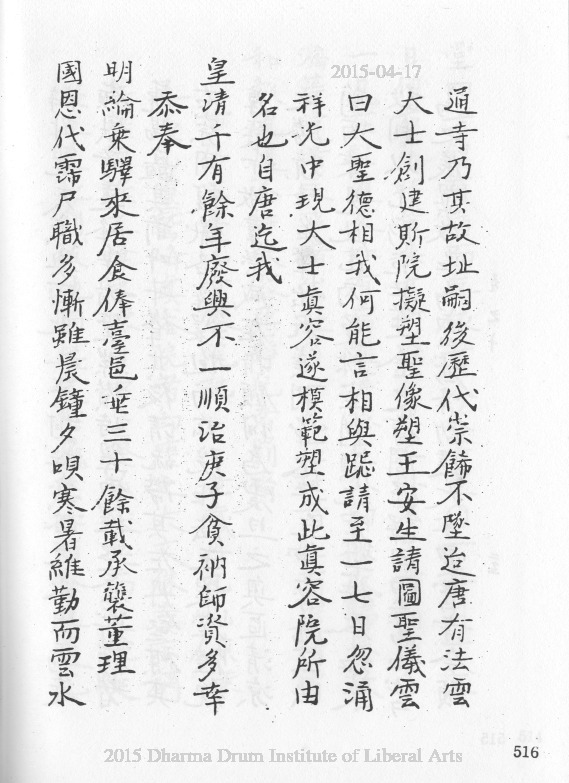 2015-04-17
通寺乃其故址嗣後歷代崇餙不墜迨唐有法雲
大士創建斯院擬塑聖像塑王安生請圖聖儀雲
曰大聖德相我何能言相與跽請至一七日忽涌
祥光中現大士真容遂模範塑成此真容院所由
名也自唐迄我
皇清千有餘年廢興不一順治庚子貧衲師資多幸
忝奉
明綸乗驛來居食俸臺邑垂三十餘載承襲董理
國恩代霈尸職多慚雖晨鐘夕唄寒暑維勤而雲水
2015 Dharma Drum Institute of Liberal Arts
516